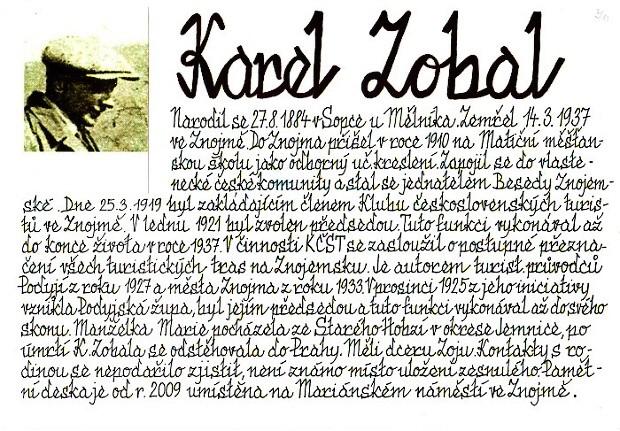 Karel Zobal
Narodil se 27.8.1884 v Sopce u Mělníka. Zemřel 14.3.1937
ve Znojmě. Do Znojma přišel v roce 1910 na Matiční měšťan-
skou školu jako odborný uč. kreslení. Zapojil se do vlaste-
necké české komunity a stal se jednatelem Besedy Znojem-
ské. Dne 25.3.1919 byl zakládajícím členem Klubu československých turis-
tů ve Znojmě. V lednu 1921 byl zvolen předsedou. Tuto funkci vykonával až
do konce života v roce 1937. V činnosti KČST se zasloužil o postupné přezna-
čení všech turistických tras na Znojemsku. Je autorem turist. průvodců
Podyjí z roku 1927 a města Znojma z roku 1933. V prosinci 1925 z jeho iniciativy
vznikla Podyjská župa, byl jejím předsedou a tuto funkci vykonával až do svého
skonu. Manželka Marie pocházela ze Starého Hobzí v okrese Jemnice, po
úmrtí K. Zobala se odstěhovala do Prahy. Měli dceru Zoju. Kontakty s ro-
dinou se nepodařilo zjistit, není známo místo uložení zesnulého. Pamět-
ní deska je od r. 2009 umístěna na Mariánském náměstí ve Znojmě.